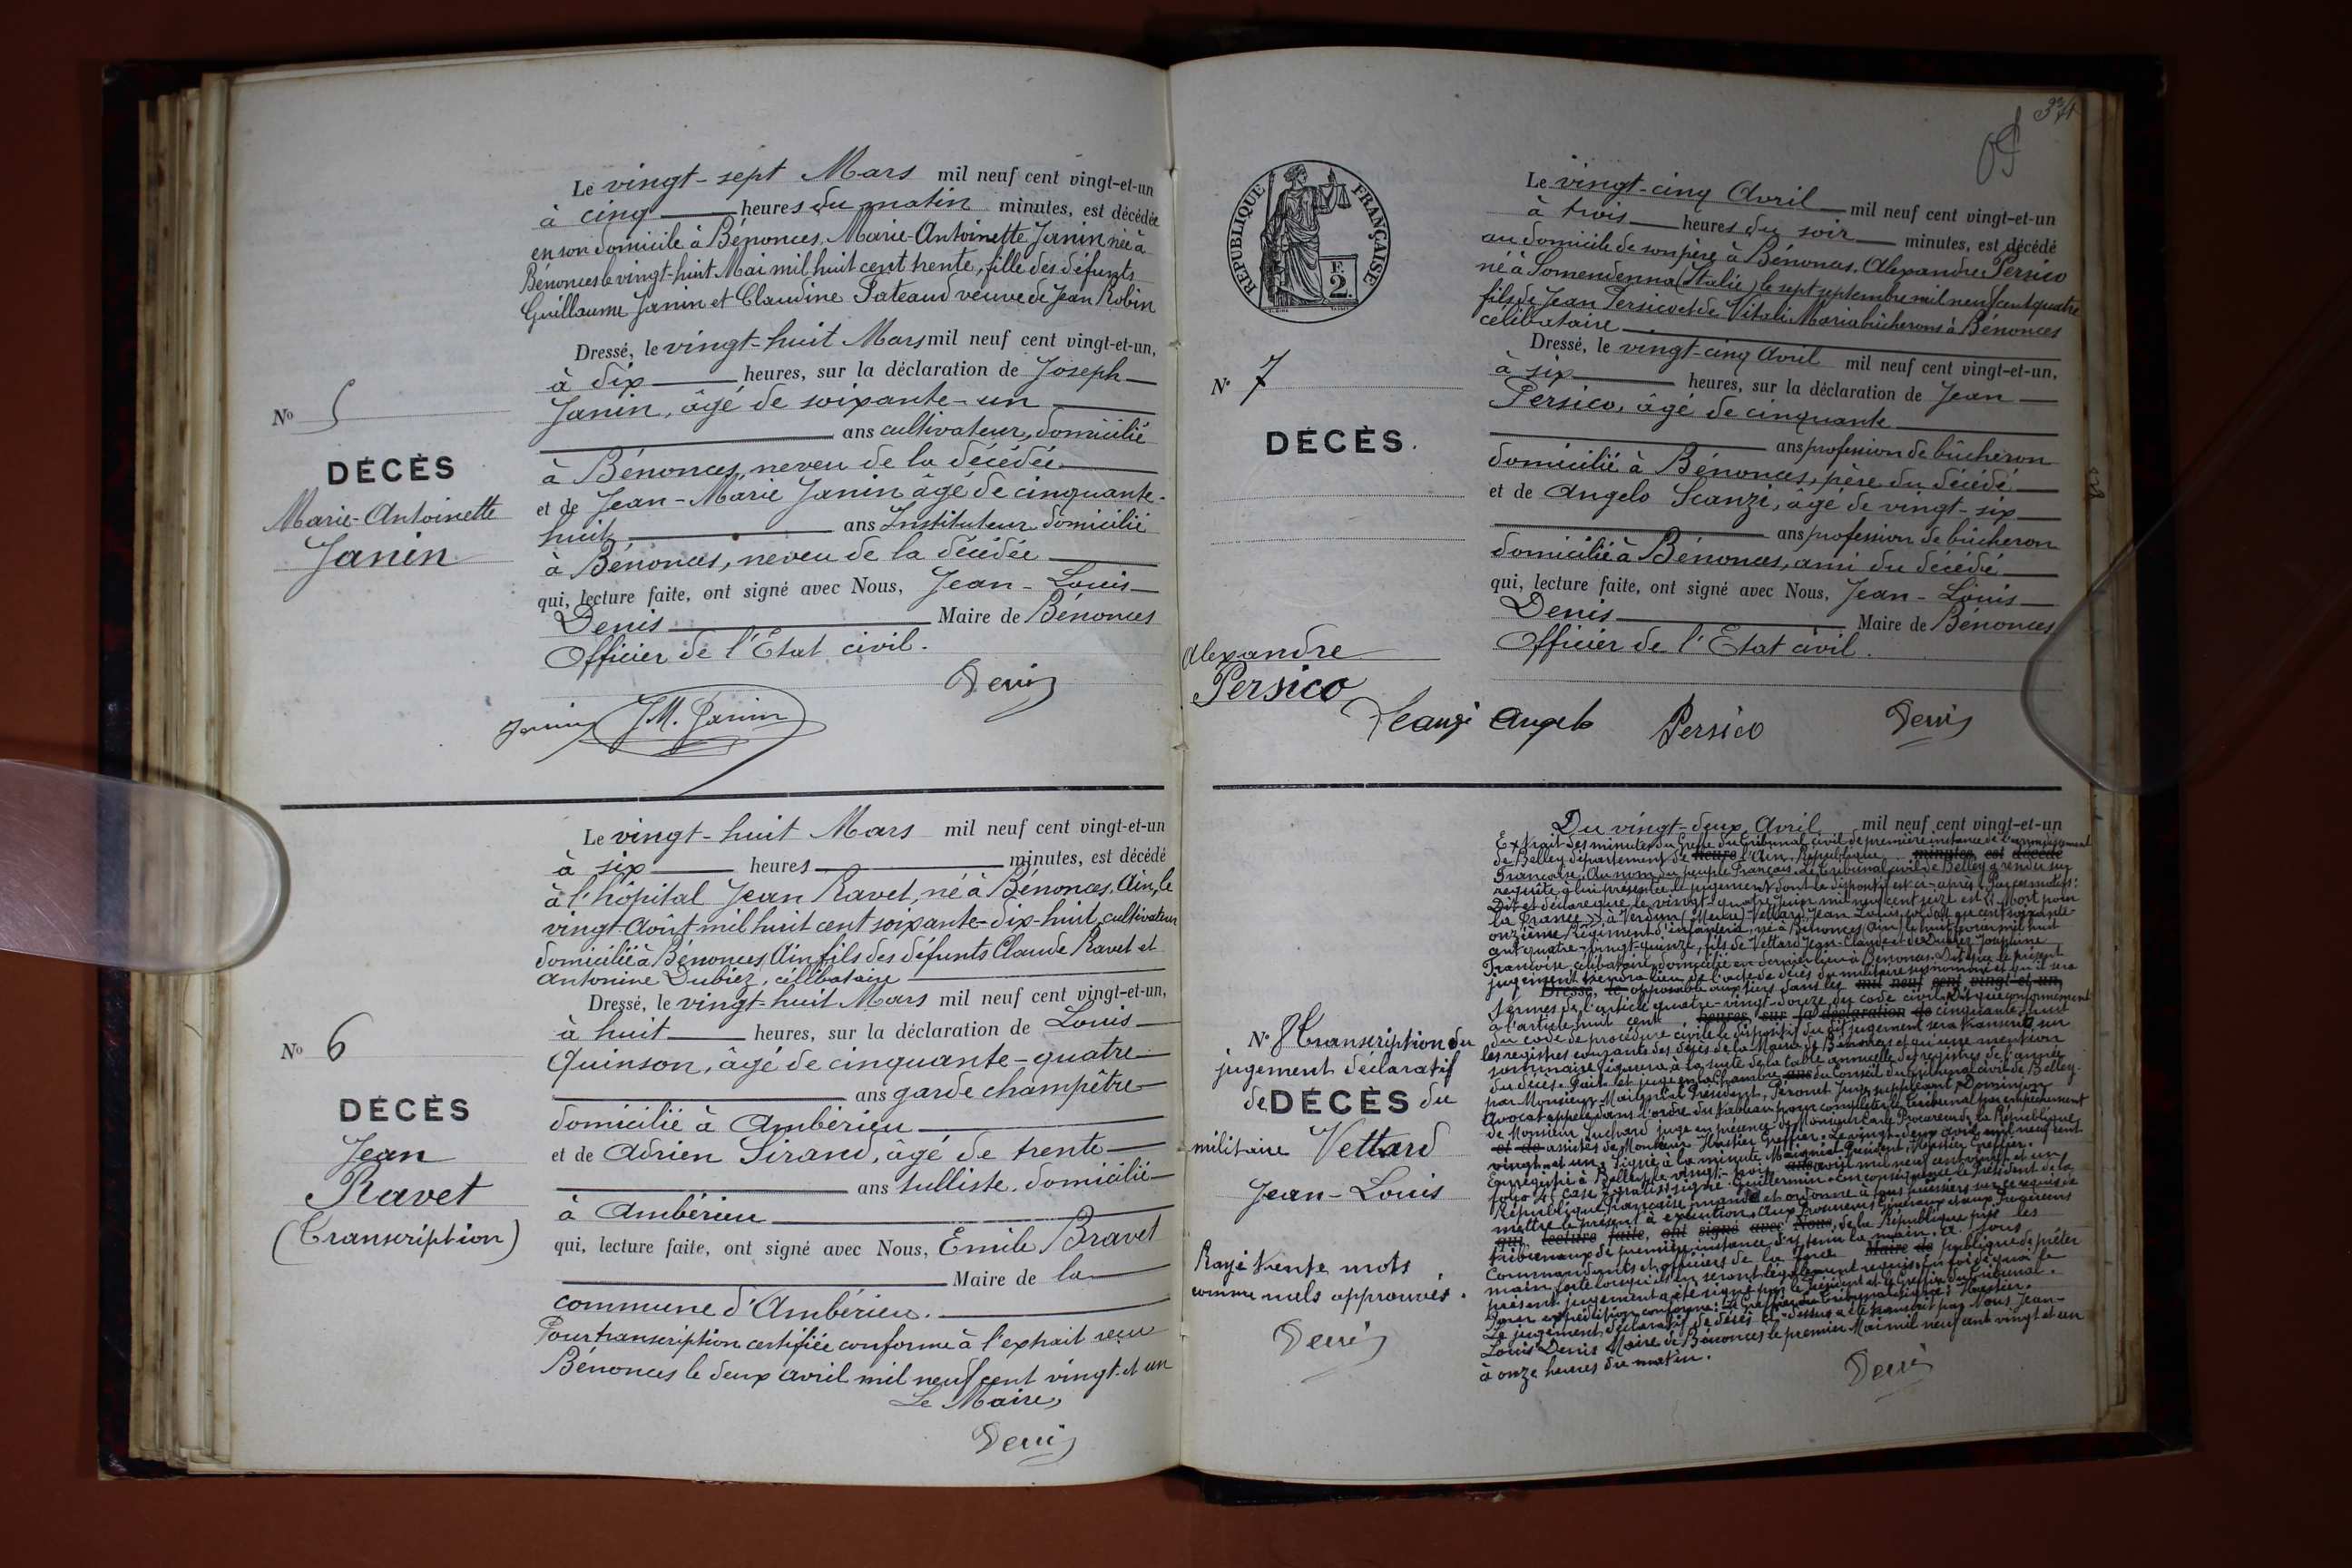 Le vingt-sept Mars mil neuf cent vingt-et-un
à cinq heures du matin minutes, est décédée
en son domicile à Bénonces, Marie-Antoinette Janin née à
Bénonces le vingt-huit Mai mil huit cent trente, fille des défunts
Guillaume Janin et Claudine Pateaud veuve de Jean Robin
Dressé, le vingt-huit Mars mil neuf cent vingt-et-un,
à dix heures, sur la déclaration de Joseph
Janin, âgé de soixante-un
ans cultivateur, domicilié
à Bénonces, neveu de la décédée
et de Jean-Marie Janin âgé de cinquante-
huit ans Instituteur domicilié
à Bénonces, neveu de la décédée
qui, lecture faite, ont signé avec Nous, Jean-Louis
Denis Maire de Bénonces
Officier de l'Etat civil.
No 5
DÉCÈS
Marie-Antoinette
Janin
Janin J.M. Janin Denis
Le vingt-huit Mars mil neuf cent vingt-et-un
à six heures minutes, est décédé
à l'hôpital Jean Ravet, né à Bénonces, Ain, le
vingt Août mil huit cent soixante-dix-huit, cultivateur
domicilié à Bénonces (Ain) fils des défunts Claude Ravet et
Antonine Dubiez, célibataire
Dressé, le vingt-huit Mars mil neuf cent vingt-et-un,
à huit heures, sur la déclaration de Louis
Quinson, âgé de cinquante-quatre
ans garde champêtre
domicilié à Ambérieu
et de Adrien Sirand, âgé de trente
ans tulliste, domicilié
à Ambérieu
qui, lecture faite, ont signé avec Nous, Emile Bravet
Maire de la
commune d'Ambérieu.
Pour transcription certifiée conforme à l'extrait reçu
Bénonces le deux avril mil neuf cent vingt-et-un
Le Maire,
Denis
No 6
DÉCÈS
Jean
Ravet
(Transcription)
RÉPUBLIQUE FRANÇAISE
F.
2.
Le vingt-cinq Avril mil neuf cent vingt-et-un
à trois heures du soir minutes, est décédé
au domicile de son père à Bénonces, Alexandre Persico
né à Somendenna (Italie) le sept septembre mil neuf cent quatre
fils de Jean Persico et de Vitali Maria bûcherons à Bénonces
célibataire
Dressé, le vingt-cinq Avril mil neuf cent vingt-et-un,
à six heures, sur la déclaration de Jean
Persico, âgé de cinquante
ans profession de bûcheron
domicilié à Bénonces, père du décédé
et de Angelo Scanzi, âgé de vingt-six
ans profession de bûcheron
domicilié à Bénonces, ami du décédé
qui, lecture faite, ont signé avec Nous, Jean-Louis
Denis Maire de Bénonces
Officier de l'Etat civil.
No 7
DÉCÈS.
Alexandre
Persico
Scanzi Angelo Persico Denis
Du vingt-deux Avril mil neuf cent vingt-et-un
Extrait des minutes du Greffe du Tribunal civil de première instance de l'arrondissement
de Belley département de heure l'Ain. République minutes, est décédé
Française. Au nom du peuple Français. Le tribunal civil de Belley a rendu sur
requête à lui présentée le jugement dont le dispositif est ci-après. Par ces motifs:
Dit et déclare que le vingt-quatre Juin mil neuf cent seize est « Mort pour
la France » à Verdun (Meuse) Vettard Jean Louis, soldat au cent soixante-
onzième Régiment d'infanterie, né à Bénonces (Ain) le huit février mil huit
cent quatre-vingt-quinze, fils de Vettard Jean-Claude et de Joséphine
Françoise, célibataire, domicilié en dernier lieu à Bénonces. Dit que le présent
jugement tiendra lieu de l'acte de décès du militaire susnommé et qu'il sera
Dressé, le opposable aux tiers dans les mil neuf cent vingt-et-un,
termes de l'article quatre-vingt-douze du code civil. Dit que conformément
à l'article huit cent heures, sur la déclaration de cinquante-huit
du code de procédure civile le dispositif du dit jugement sera transcrit sur
les registres courants des décès de la Mairie de Bénonces et qu'une mention
sommaire figurera à la suite de la table annuelle des registres de l'année
du décès. Fait et jugé en la Chambre ans du Conseil du tribunal civil de Belley
par Monsieur Maigniat Président, Péronet Juge suppléant, Dominjon
Avocat appelé dans l'ordre du tableau pour compléter le tribunal par empêchement
de Monsieur Suchard juge en présence de Monsieur Procureur de la République
et de assistés de Monsieur Hostier Greffier. Le vingt-deux avril mil neuf cent
vingt et un. Signé à la minute Maigniat Président, Hostier Greffier.
Enregistré à Belley le vingt-trois ans avril mil neuf cent vingt et un
folio case gratis signé Guillermin. En conséquence le président de la
République Française mande et ordonne à tous huissiers sur ce requis de
mettre le présent à exécution. Aux Procureurs Généraux et aux Procureurs
qui, lecture faite, ont signé avec Nous, de la République près les
tribunaux de première instance d'y tenir la main. A tous
Commandants et officiers de la force Maire de publique de prêter
main forte lorsqu'ils en seront légalement requis. En foi de quoi le
présent jugement a été signé par le Président et le Greffier du Tribunal.
Pour expédition conforme: Le Greffier du Tribunal signé: Hostier.
Le jugement déclaratif de décès ci-dessus a été transcrit par Nous Jean-
Louis Denis Maire de Bénonces le premier Mai mil neuf cent vingt et un
à onze heures du matin.
Denis
No 8 Transcription du
jugement déclaratif
de DÉCÈS du
militaire Vettard
Jean-Louis
Rayé trente mots
comme nuls approuvés.
Denis